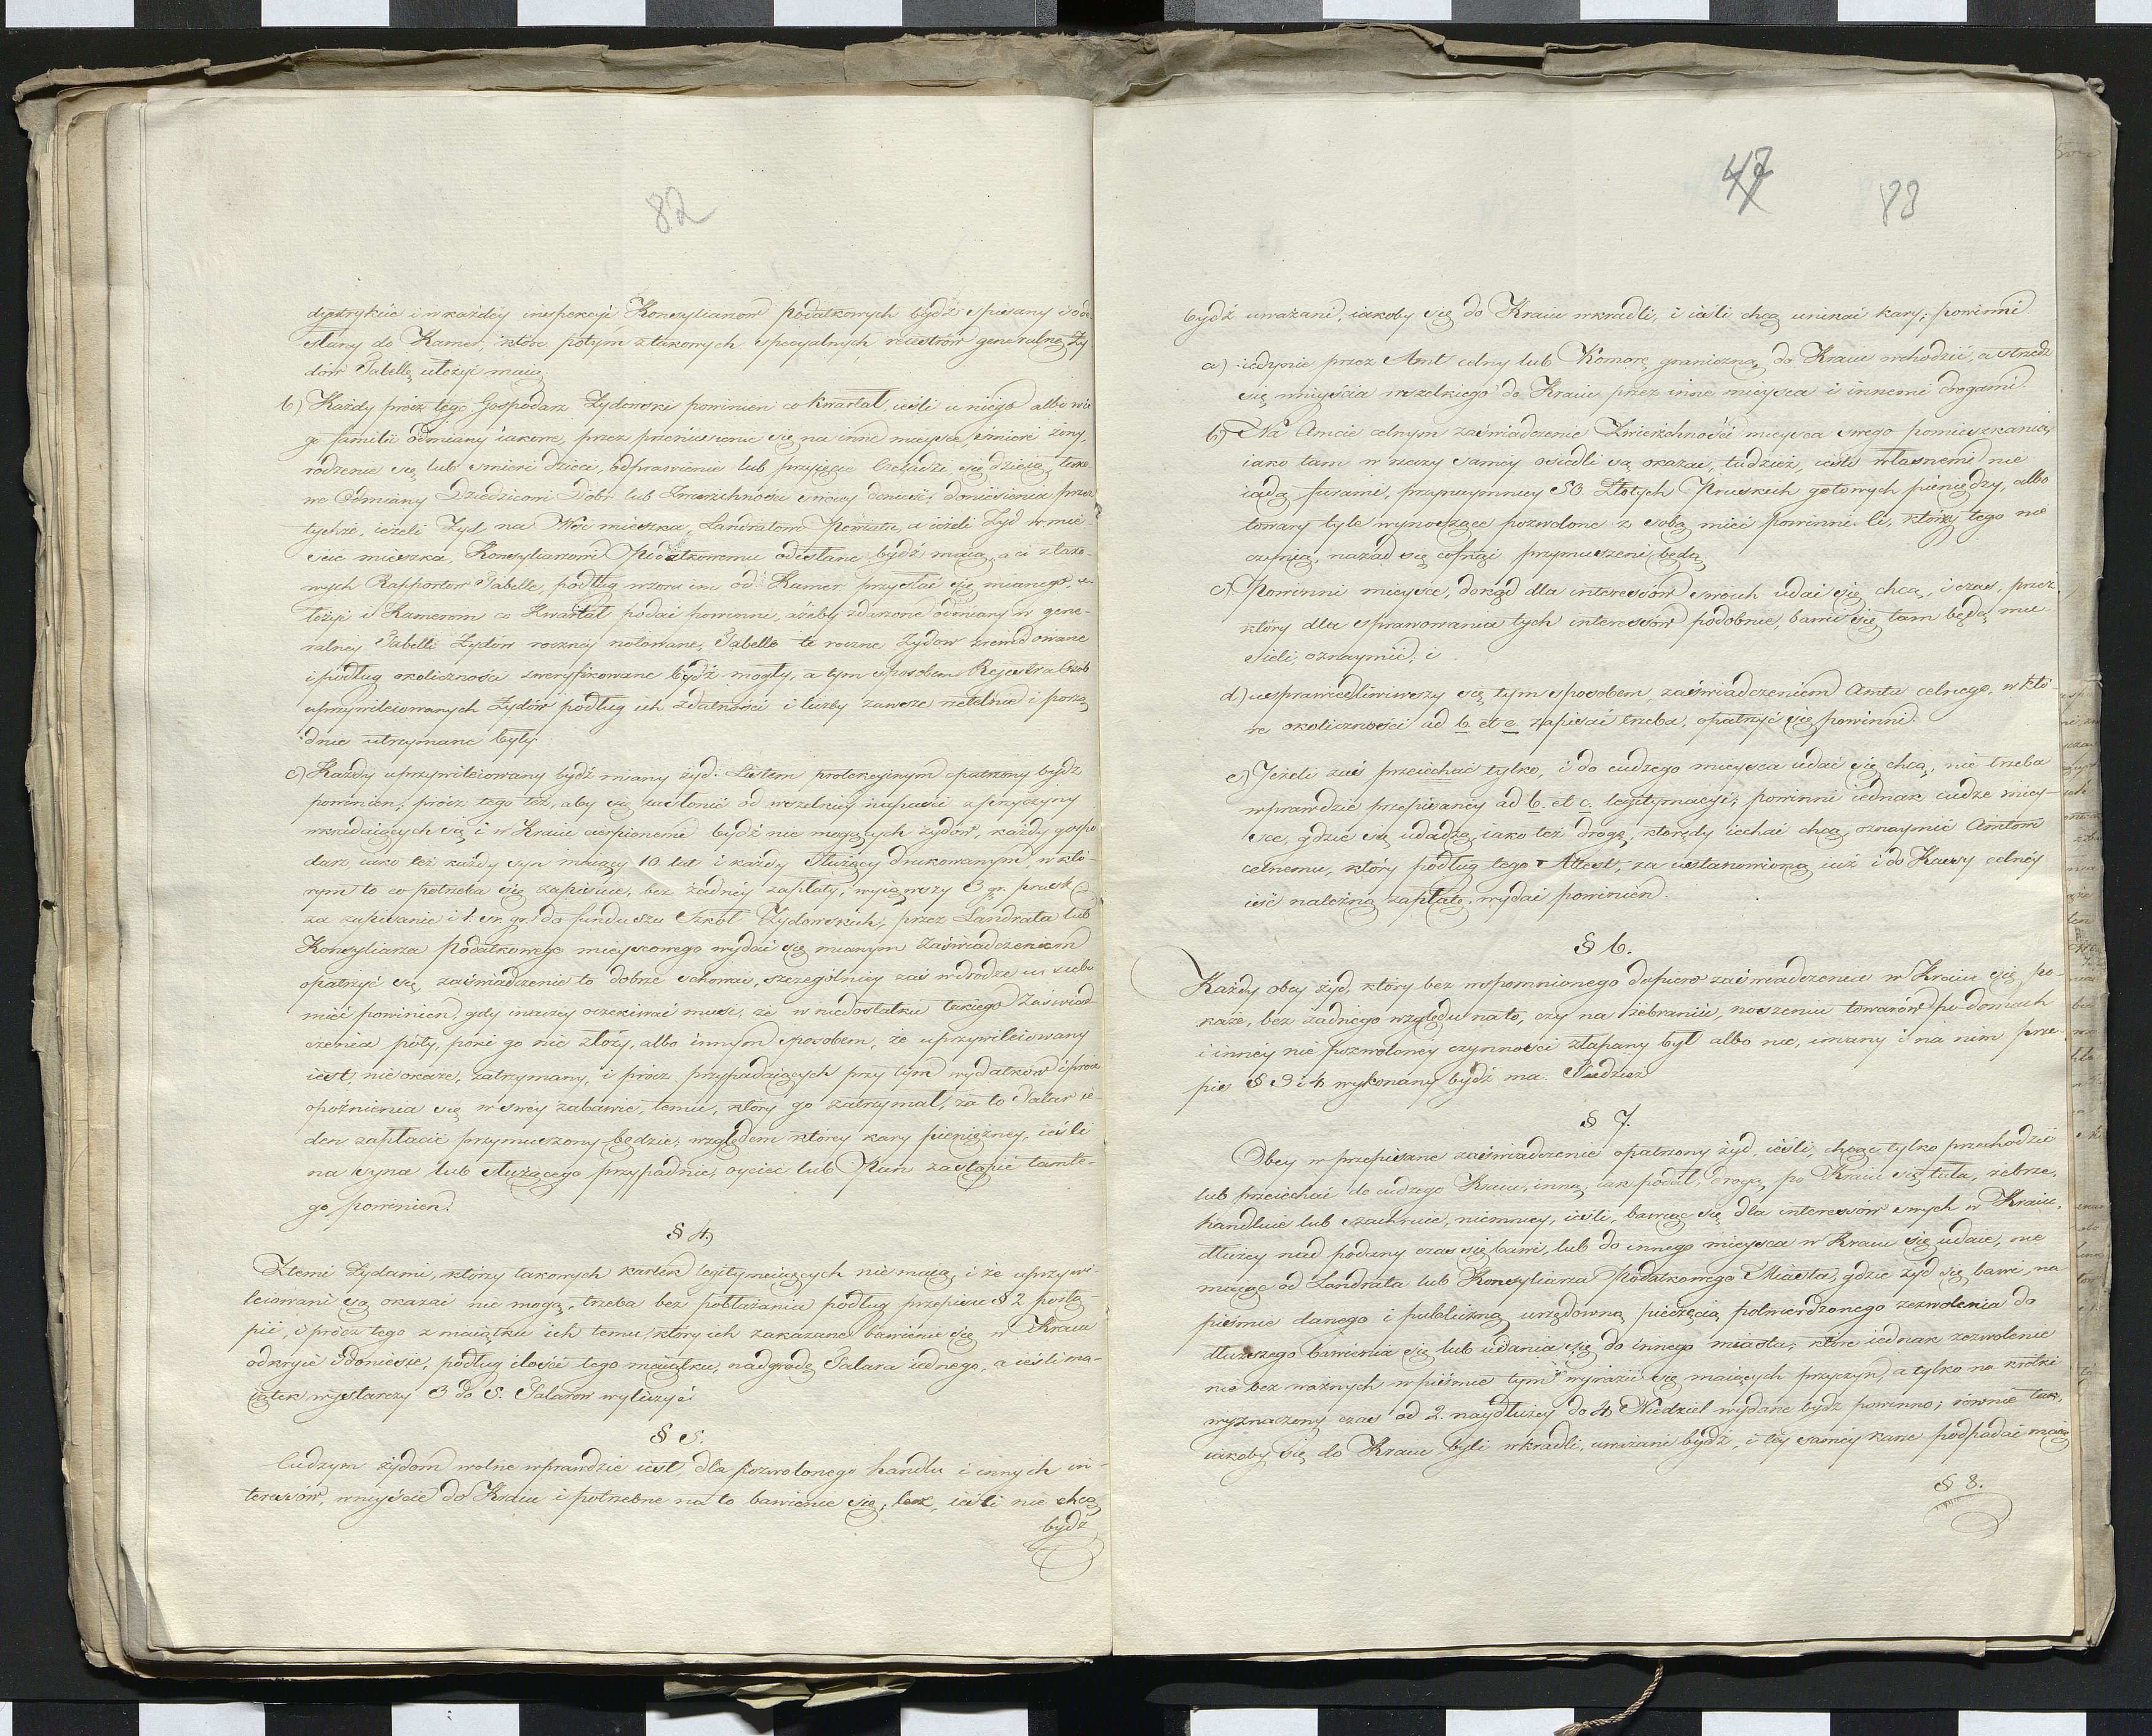 82
dystrykcie i w każdéy inspekcyi Konsyliarzow podatkowych bydź spisany i ode-
słany do Kamer, które potym z takowych specyalnych reiestrów generalną Ży
dow Tabellę ułożyć maią.
b) Każdy prócz tego Gospodarz Żydowski powinien co kwartał, ieśli u niego albo w ie
go familii odmiany iakowe, przez przeniesienie się na inne mieysce, śmierć żony,
rodzenie się lub śmierć dzieci, odprawienie lub przyięcie Czeladzi, się dzieią, tako
we Odmiany Dziedzicowi Dobr lub Zwierzchności swoiey donieść; doniesienia przez
tychże, ieżeli Żyd na Wsi mieszka, Landratowi Powiatu, a ieżeli Żyd w mie
ście mieszka, Konsyliarzowi Podatkowemu odesłane bydź maią, a ci z tako-
wych Rapportow Tabelle, podług wzoru im od Kamer przysłać się mianego, u-
łożyć i Kamerom co Kwartał podać powinni, ażeby zdarzone odmiany w gene-
ralney Tabelli Żydów roczney notowane, Tabelle te roczne Żydow
i podług okoliczności zweryfikowane bydź mogły, a tym sposobem Rejestra Osob
uprzywileiowanych Żydów podług ich zdatności i liczby zawsze rzetelnie i porzą
dnie utrzymane były.
c) Każdy uprzywileiowany bydź miany żyd. Listem protekcyinym opatrzony bydź
powinien; prócz tego też, aby się zasłonić od wszelkiéy napaści z przyczyny
wkradaiących się i w Kraiu cierpionemi bydź nie mogących żydów, każdy gospo
darz iako też każdy syn maiący 10. lat i każdy Służący drukowanym, w któ-
rym to co potrzeba się zapisuie, bez żadnéy zapłaty, wyiąwszy 3 gr. prusk
za zapisanie i 1. sr. gr. do funduszu Szkół Żydowskich, przez Landrata lub
Konsyliarza Podatkowego mieyscowego wydać się mianym Zaświadczeniem
opatrzyć się, zaświadczenie to dobrze schować, szczególniey zaś w drodze u siebie
mieć powinien, gdy inaczey oczekiwać musi, że w niedostatku takiego Zaświad-
czenia póty, poki go nie złoży, albo innym sposobem, że uprzywileiowany
iest, nie okaże, zatrzymany, i prócz przypadaiących przy tym wydatków i prócz
opoźnienia się w swey zabawie, temu, który go zatrzymał, za to Talar ie
den zapłacić przymuszony będzie; względem którey kary pieniężney, ieśli
na syna lub służącego przypadnie, oyciec lub Pan zastąpić tamte-
go powinien.
§ 4.
Z temi Żydami, którzy takowych kartek legitymuiących nie maią, i że uprzywi
leiowani są okazać nie mogą, trzeba bez pobłażania podług przepisu § 2 postą-
pić, i prócz tego z maiątku ich temu, który ich zakazane bawienie się w Kraiu
odkryie i doniesie, podług ilości tego maiątku, nadgrodę Talara iednego, a ieśli ma-
iątek wystarczy 3 do 5. Talarow wyliczyć.
§ 5.
Cudzym żydom wolne wprawdzie iest, dla pozwolonego handlu i innych in-
teressów, wniyście do Kraiu i potrzebne na to bawienie się, lecz, ieśli nie chcą
bydź
47
83
bydź uważani, iakoby się do Kraiu wkradli, i ieśli chcą unikać kary; powinni
a) iedynie przez Amt celny lub Komorę graniczną, do Kraiu wchodzić, a strzedz
się wniyścia wszelkiego do Kraiu przez inne mieysca i innemi drogami.
b) Na Amcie celnym zaświadczenie Zwierzchności mieysca swego pomieszkania,
iako tam w rzeczy saméy osiedli są, okazać, tudzież, ieśli własnemi nie
iadą furami, przynaymniey 50. Złotych Pruskich gotowych pieniędzy, albo
towary tyle wynoszące pozwolone z sobą mieć powinni. Ci, którzy tego nie
czynią, nazad się cofnąć przymuszeni będą
c) Powinni mieysce, dokąd dla interessów swoich udać się chcą, i czas, przez
który dla sprawowania tych interessów podobnie, bawić się tam będą mu-
sieli, oznaymić; i
d) usprawiedliwiwszy się tym sposobem, zaświadczeniem Amtu celnego, w któ-
re okoliczności ad b et c zapisać trzeba, opatrzyć się powinni.
e) Jeżeli zaś przeiechać tylko, i do cudzego mieysca udać się chcą, nie trzeba
wprawdzie przepisaney ad b. et c. legitymacyi; powinni iednak cudze miey-
sce, gdzie się udadzą, iako też drogę, którędy iechać chcą, oznaymić Amtowi
celnemu, który podług tego Attest, za ustanowioną iuż i do Kassy celnéy
iść należną zapłatę, wydać powinien.
§ 6.
Każdy obcy żyd, który bez wspomnionego dopiero zaświadczenia w Kraiu się po-
każe, bez żadnego względu na to, czy na żebraniu, noszeniu towarów po domach
i innéy nie pozwoloney czynności złapany był albo nie, imany i na nim prze-
pis § 3 i 4 wykonany bydź ma. Tudzież
§ 7.
Obcy w przepisane zaświadczenie opatrzony żyd, ieśli, chcąc tylko przechodzić
lub przeiechać do cudzego Kraiu, inną, iak podał, drogą, po Kraiu się tuła, żebrze,
handluie lub szachruie, niemniey, ieśli, bawiąc się dla interessów swych w Kraiu,
dłużey nad podany czas się bawi, lub do innego mieysca w Kraiu się udaie, nie
maiąc od Landrata lub Konsyliarza Podatkowego Miasta, gdzie żyd się bawi, na
piśmie danego i publiczną urzędowną pieczęcią potwierdzonego zezwolenia do
dłuższego bawienia się lub udania się do innego miasta; które iednak zezwolenie
nie bez ważnych w piśmie tym wyrazić się maiących przyczyn, a tylko na krótki
wyznaczony czas od 2. naydłużey do 4 Niedziel wydane bydź powinno; równie tak,
iakoby się do Kraiu byli wkradli, uważani bydź, i téy saméy karze podpadać maią
§ 8.